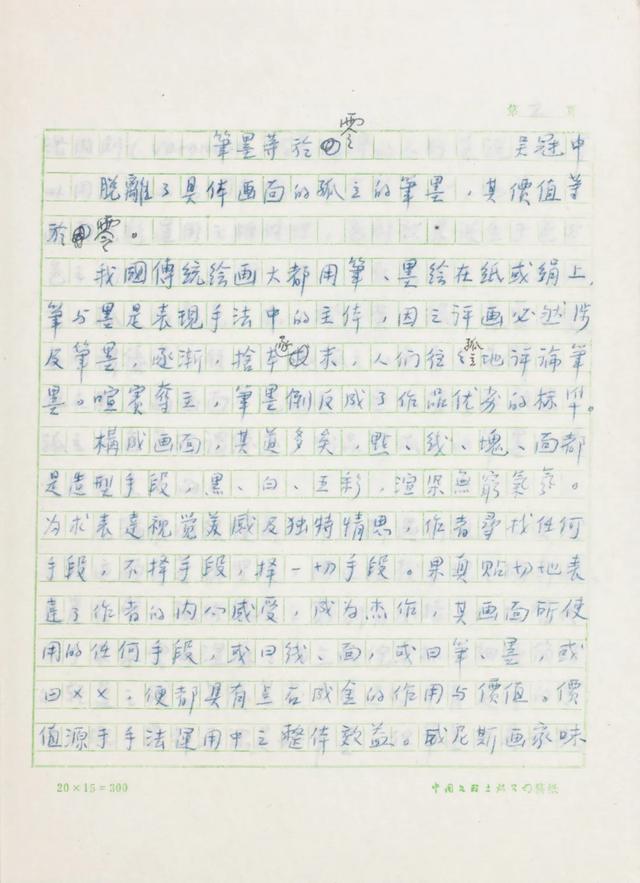 第 2 页
筆墨等於零 吴冠中
脱離了具体画面的孤立的筆墨，其價值等
於零。
我國傳統绘画大都用筆、墨绘在纸或绢上，
筆与墨是表現手法中的主体，因之评画必然涉
及筆墨，逐渐，捨本逐末，人们往往孤立地评論筆
墨。喧賓奪主，筆墨倒反成了作品优劣的标準。
構成画面，其道多矣，點、线、塊、面都
是造型手段，黑、白、五彩，渲染無窮氣氛。
为求表達視觉美感及独特情思，作者尋找任何
手段，不择手段，择一切手段。果真贴切地表
達了作者的内心感受，成为杰作，其画面所使
用的任何手段，或曰线、面，或曰筆、墨，或
曰××，便都具有点石成金的作用与價值。價
值源于手法運用中之整体效益。威尼斯画家味
20×15=300